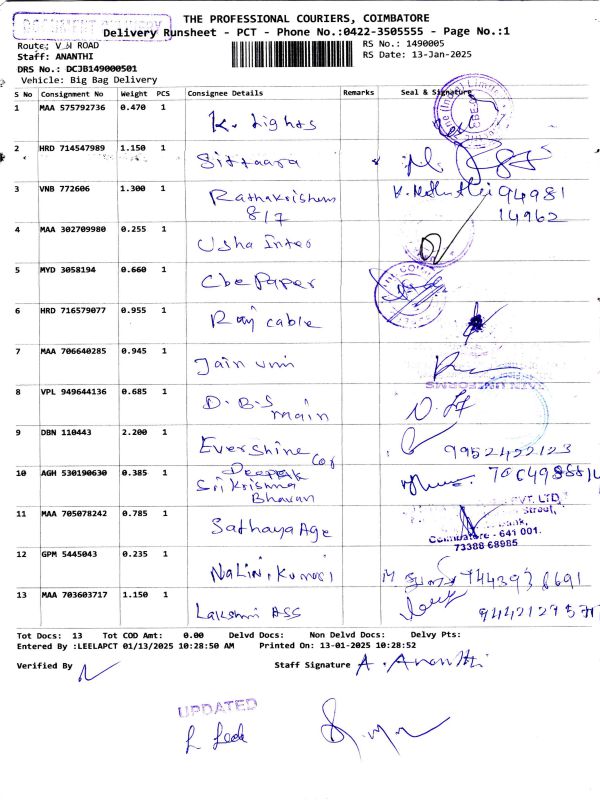 THE PROFESSIONAL COURIERS, COIMBATORE
Delivery Runsheet - PCT - Phone No.:0422-3505555 - Page No.:1
Route: V H ROAD
Staff: ANANTHI
DRS No.: DCJB149000501
Vehicle: Big Bag Delivery
RS No.: 1490005
RS Date: 13-Jan-2025
S No Consignment No Weight PCS Consignee Details Remarks Seal & Signature
1 MAA 575792736 0.470 1 K. Lights
2 HRD 714547989 1.150 1 Sittaara
3 VNB 772606 1.300 1 Rathakrishnan 94981
8/7 14962
4 MAA 302709980 0.255 1 Usha Inter
5 MYD 3058194 0.660 1 Cbe Paper
6 HRD 716579077 0.955 1 Raj cable
7 MAA 706640285 0.945 1 Jain uni
JAIN UNIFORMS
8 VPL 949644136 0.685 1 D.B.S
main
9 DBN 110443 2.200 1 Evershine 9952422123
10 AGH 530190630 0.385 1 Deepak
Sri Krishna
Bhavan
11 MAA 705078242 0.785 1 Sathaya Age
PVT. LTD.
Street,
Coimbatore - 641 001.
73388 68985
12 GPM 5445043 0.235 1 Nalin. Kumari
13 MAA 703603717 1.150 1 Lakshmi ASS
Tot Docs: 13 Tot COD Amt: 0.00 Delvd Docs: Non Delvd Docs: Delvy Pts:
Entered By :LEELAPCT 01/13/2025 10:28:50 AM Printed On: 13-01-2025 10:28:52
Verified By Staff Signature A. Ananthi
UPDATED